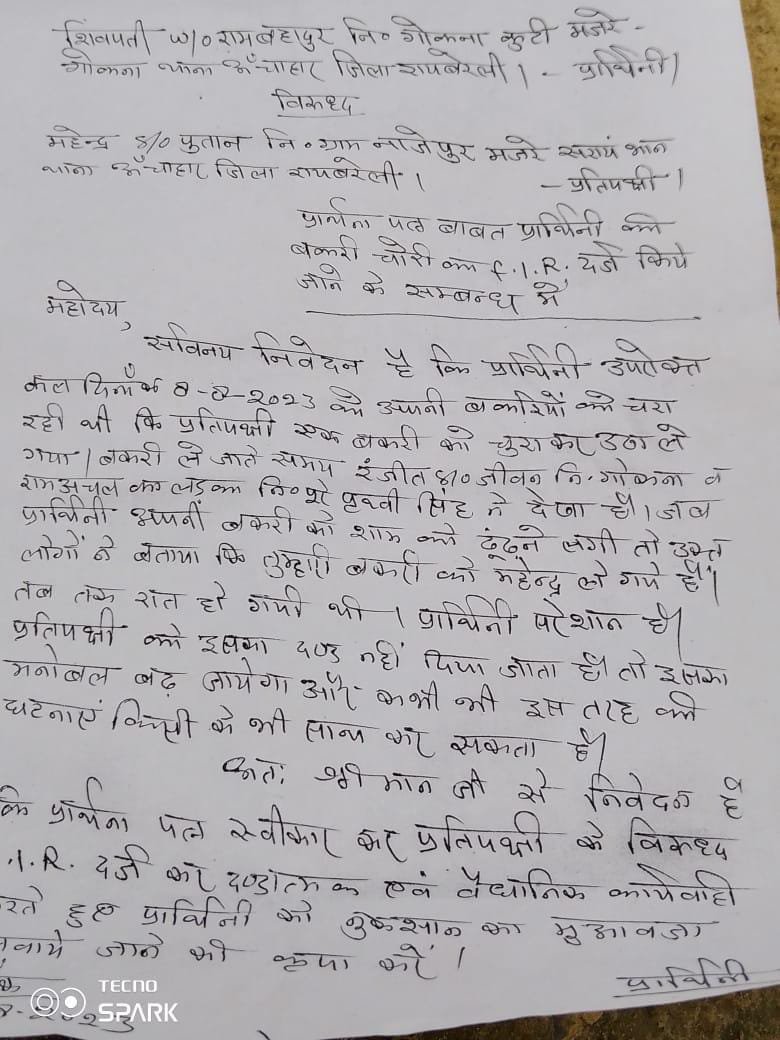 शिवपती w/o रामबहादुर नि० गोकना कुटी मजरे -
गोकना थाना ऊँचाहार जिला रायबरेली । - प्रार्थिनी ।
विरुध्द
महेन्द्र s/o फुतान नि० ग्राम नाजेपुर मजरे सरायं भान
थाना ऊँचाहार जिला रायबरेली । - प्रतिपक्षी ।
प्रार्थना पत्र बाबत प्रार्थिनी की
बकरी चोरी का F.I.R. दर्ज किये
जाने के सम्बन्ध में
महोदय,
सविनय निवेदन है कि प्रार्थिनी उपरोक्त
कल दिनाँक 8-8-2023 को अपनी बकरियों को चरा
रही थी कि प्रतिपक्षी एक बकरी को चुरा कर उठा ले
गया । बकरी ले जाते समय रंजीत s/o जीवन नि. गोकना व
रामअचल का लड़का नि० पूरे पृथ्वी सिंह ने देखा है । जब
प्रार्थिनी अपनी बकरी को शाम को ढूंढ़ने लगी तो उक्त
लोगों ने बताया कि तुम्हारी बकरी को महेन्द्र ले गये हैं ।
तब तक रात हो गयी थी । प्रार्थिनी परेशान है ।
प्रतिपक्षी को इसका दण्ड नहीं दिया जाता है तो इसका
मनोबल बढ़ जायेगा और कभी भी इस तरह की
घटनाएं किसी के भी साथ कर सकता है ।
अतः श्रीमान जी से निवेदन है
कि प्रार्थना पत्र स्वीकार कर प्रतिपक्षी के विरुध्द
.I.R. दर्ज कर दण्डात्मक एवं वैधानिक कार्यवाही
रते हुए प्रार्थिनी को नुकसान का मुआवजा
वाये जाने की कृपा करें ।
प्रार्थिनी
-2023
TECNO
SPARK